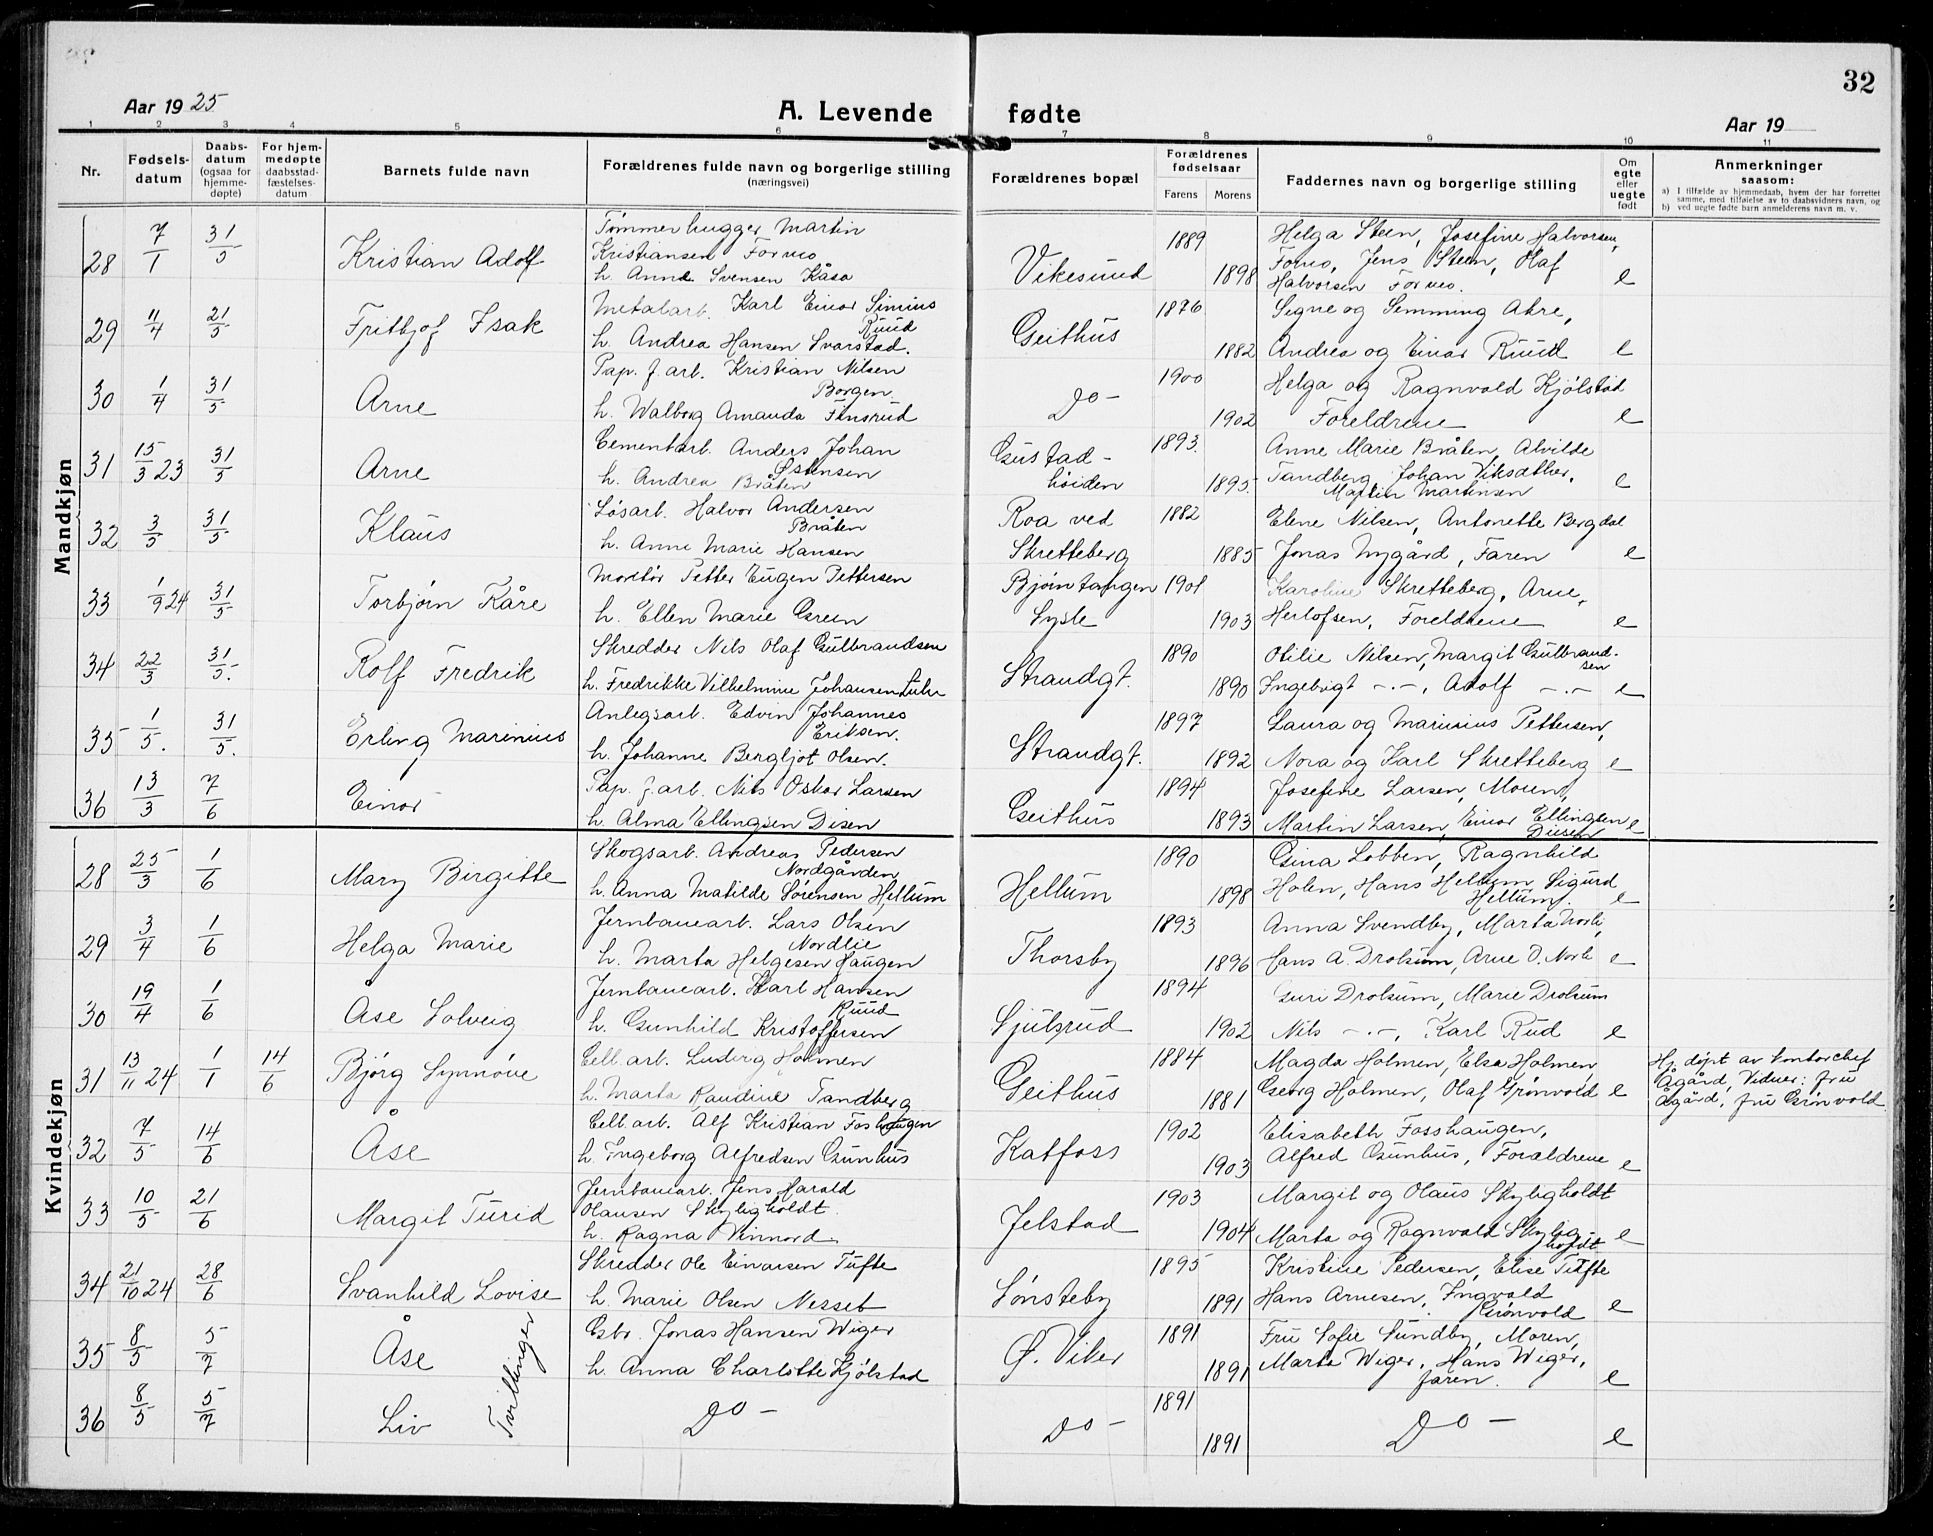 32
Aar 1925
A. Levende fødte
Aar 19
1 2 3 4 5 6 7 8 9 10 11
Nr.
Fødsels-datum
Daabs-datum (ogsaa for hjemme-døpte)
For hjem-medøpte daabsstad-fæstelses-datum
Barnets fulde navn
Forældrenes fulde navn og borgerlige stilling (næringsvei)
Forældrenes bopæl
Forældrenes fødselsaar
Farens Morens
Faddernes navn og borgerlige stilling
Om egte eller uegte født
Anmerkninger saasom:
a) I tilfælde av hjemmedaab, hvem der har forrettet samme, med tilføielse av to daabsvidners navn, og
b) ved uegte fødte barn anmelderens navn m. v.
Mandkjøn
28 7/1 31/5 Kristian Adolf
Tømmerhugger Martin
Kristiansen Formo
h. Anne Svensen Kåsa
Vikesund 1889 1898
Helga Steen, Josefine Halvorsen,
Formo, Jens Steen, Olaf
Halvorsen Formo. e
29 11/4 21/5 Fritbjof Isak
Metalarb. Karl Einar Simius
Ruud
h. Andrea Hansen Svarstad.
Geithus 1876 1882
Signe og Semming Akre,
Andrea og Einar Ruud e
30 1/4 31/5 Arne
Pap. f. arb. Kristian Nilsen
Borgen.
h. Walborg Amanda Finsrud
Do - 1900 1902
Helga og Ragnvald Kjølstad
Foreldrene e
31 15/3 23 31/5 Arne
Cementarb. Anders Johan
Stensen
h. Andrea Bråten
Gustad-
høiden 1893. 1895.
Anne Marie Bråten, Alvilde
Tandberg, Johan Viksæther,
Martin Martinsen e
32 3/5 31/5 Klaus
Løsarb. Halvor Andersen
Bråten
h. Anne Marie Hansen
Roa ved
Skretteberg 1882 1885
Elene Nilsen, Antonette Bergdal
Jonas Nygård, Faren e
33 1/9 24 31/5 Torbjørn Kåre
Montør Petter Eugen Pettersen
h. Ellen Marie Green
Bjørntangen
Sysle 1901 1903
Karoline Skretteberg, Arne,
Herlofsen, Foreldrene e
34 22/3 31/5. Rolf Fredrik
Skredder Nils Olaf Gulbrandsen
h. Fredrikke Vilhelmine Johansen Luhr
Strandgt. 1890 1890
Otilie Nilsen, Margit Gulbrand-
sen
Ingebrigt -.-, Adolf -.- e
35 1/5. 31/5. Erling Marinius
Anlegsarb. Edvin Johannes
Eriksen.
h. Johanne Bergljot Olsen.
Strandgt. 1897 1892
Laura og Marinius Pettersen,
Nora og Karl Skretteberg e
36 13/3 7/6 Einar
Pap. f. arb. Nils Oskar Larsen
h. Alma Ellingsen Disen
Geithus 1894 1893
Josefine Larsen, Moren,
Martin Larsen, Einar Ellingsen
Disen e
Kvindekjøn
28 25/3 1/6 Mary Birgitte
Skogsarb. Andreas Pedersen
Nordgården
h. Anna Matilde Sørensen Hellum
Hellum 1890 1898
Gina Lobben, Ragnhild
Holen, Hans Hellum, Sigurd
Hellum. e
29 3/4 1/6 Helga Marie
Jernbanearb. Lars Olsen
Nordlie
h. Marta Helgesen Haugen
Thorsby 1893 1896
Anna Svendby, Marta Norli,
Hans A. Drolsum, Arne O. Norli e
30 19/4 1/6 Åse Solveig
Jernbanearb. Karl Hansen
Ruud
h. Gunhild Kristoffersen
Sjulsrud 1894 1902
Guri Drolsum, Marie Drolsum
Nils -.-, Karl Rud e
31 13/11 24 1/1 14/6 Bjørg Synnøve
Cell. arb. Ludvig Holmen
h. Marta Randine Tandberg
Geithus 1884 1881
Magda Holmen, Elsa Holmen,
Georg Holmen, Olaf Grønvold e
Hj. døpt av kontorchef
Ågård, Vidner: fru
Ågård, fru Grønvold
32 7/5 14/6 Åse
Cell. arb. Alf Kristian Fosshaugen
h. Ingeborg Alfredsen Gunhus
Katfoss 1902 1903
Elisabeth Fosshaugen,
Alfred Gunhus, Forældrene e
33 10/5 21/6 Margit Turid
Jernbanearb. Jens Harald
Olausen Skyligholdt.
h. Ragna Vinnord
Jelstad 1903 1904
Margit og Olaus Skyligholdt
Marta og Ragnvald Skylig-
holdt e
34 21/10 24 28/6 Svanhild Lovise
Skredder Ole Einarsen Tufte
h. Marie Olsen Nesset
Sønsteby 1895 1891
Kristine Pedersen, Elise Tufte
Hans Arnesen, Ingvald
Grønvold e
35 8/5 5/7 Åse
Tvillinger
Gbr. Jonas Hansen Wiger
h. Anna Charlotte Kjølstad
Ø. Viker 1891 1891
Fru Sofie Sundby, Moren,
Marta Wiger, Hans Wiger,
faren. e
36 8/5 5/7 Liv
Do -
Do - 1891 1891
Do - e